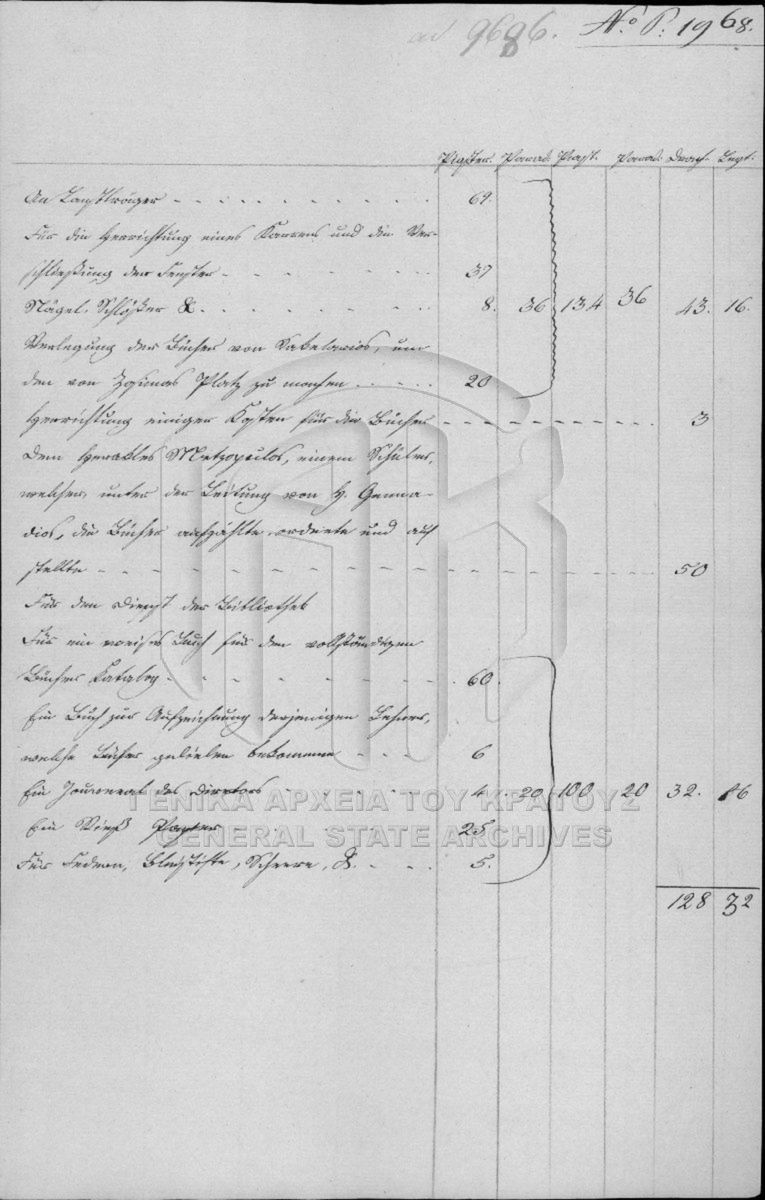 ad 9686. No. P. 1968.
Piaster. Parad. Piast. Parad. Drach. Lept.
An Lastträger - - - - - - - - - - 69.
Für die Herrichtung eines Karrens und die Ver-
schließung der Fenster - - - - - - 37
Nägel, Schlößer &. - - - - - - - 8. 36 134 36 43. 16.
Verlegung der Bücher von Sakelarios, um
den von Zosimas Platz zu machen - - - - - 20
Herrichtung einiger Kasten für die Bücher - - - - - - - - - - - 3
Dem Herakles Metzopulos, einem Schüler,
welcher unter der Leitung von H. Genna-
dios, die Bücher aufzählte, ordnete und auf
stellte - - - - - - - - - - - - - - - - - 50
Für den Dienst der Bibliothek
Für ein weißes Buch für den vollständigen
Bücher Katalog - - - - - - - - 60.
Ein Buch zur Aufzeichnung derjenigen Lehrer,
welche Bücher geliehen bekommen - - - - 6
Ein Journal des Direktors - - - - - 4. 20 100 20 32. 16
Ein Rieß Papier - - - - - 25.
Für Federn, Bleistifte, Scheere, &. - - - 5.
128 32
ΓΕΝΙΚΑ ΑΡΧΕΙΑ ΤΟΥ ΚΡΑΤΟΥΣ
GENERAL STATE ARCHIVES